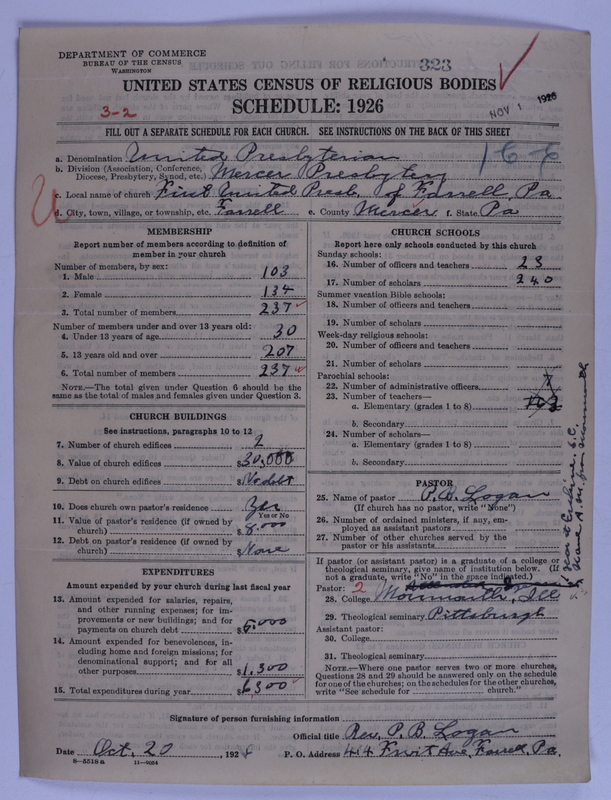 DEPARTMENT OF COMMERCE
BUREAU OF THE CENSUS
WASHINGTON
323
UNITED STATES CENSUS OF RELIGIOUS BODIES
SCHEDULE: 1926
NOV 1 1926
3-2
FILL OUT A SEPARATE SCHEDULE FOR EACH CHURCH. SEE INSTRUCTIONS ON THE BACK OF THIS SHEET
a. Denomination United Presbyterian
b. Division (Association, Conference, Diocese, Presbytery, Synod, etc.) Mercer Presbytery
c. Local name of church First United Presb. of Farrell, Pa
d. City, town, village, or township, etc. Farrell e. County Mercer f. State Pa
MEMBERSHIP
Report number of members according to definition of
member in your church
Number of members, by sex:
1. Male 103
2. Female 134
3. Total number of members 237
Number of members under and over 13 years old:
4. Under 13 years of age 30
5. 13 years old and over 207
6. Total number of members 237
NOTE.—The total given under Question 6 should be
same as the total of males and females given under Question 3.
CHURCH BUILDINGS
See instructions, paragraphs 10 to 12
7. Number of church edifices 2
8. Value of church edifices $30,000
9. Debt on church edifices $No debt
10. Does church own pastor's residence? Yes
Yes or No
11. Value of pastor's residence (if owned by
church) $8,000
12. Debt on pastor's residence (if owned by
church) $None
EXPENDITURES
Amount expended by your church during last fiscal year
13. Amount expended for salaries, repairs,
and other running expenses; for im-
provements or new buildings; and for
payments on church debt $5,000
14. Amount expended for benevolences, in-
cluding home and foreign missions; for
denominational support; and for all
other purposes $1,300
15. Total expenditures during year $6,300
CHURCH SCHOOLS
Report here only schools conducted by this church
Sunday schools:
16. Number of officers and teachers 23
17. Number of scholars 240
Summer vacation Bible schools:
18. Number of officers and teachers
19. Number of scholars
Week-day religious schools:
20. Number of officers and teachers
21. Number of scholars
Parochial schools:
22. Number of administrative officers
23. Number of teachers—
a. Elementary (grades 1 to 8)
b. Secondary
24. Number of scholars—
a. Elementary (grades 1 to 8)
b. Secondary
PASTOR
25. Name of pastor P. B. Logan
(If church has no pastor, write "None")
26. Number of ordained ministers, if any, em-
ployed as assistant pastors
27. Number of other churches served by the
pastor or his assistants
If pastor (or assistant pastor) is a graduate of a college or
theological seminary, give name of institution below. (If
not a graduate, write "No" in the space indicated.)
Pastor: 2
28. College Monmouth, Ill
29. Theological seminary Pittsburgh
Assistant pastor:
30. College
31. Theological seminary
NOTE.—Where one pastor serves two or more churches,
Questions 28 and 29 should be answered only on the schedule
for one of the churches; on the schedules for the other churches,
write "See schedule for church."
Signature of person furnishing information
Official title Rev. P. B. Logan
Date Oct. 20, 1926 P. O. Address 414 Fruit Ave, Farrell, Pa.
8—5518a 11—9054